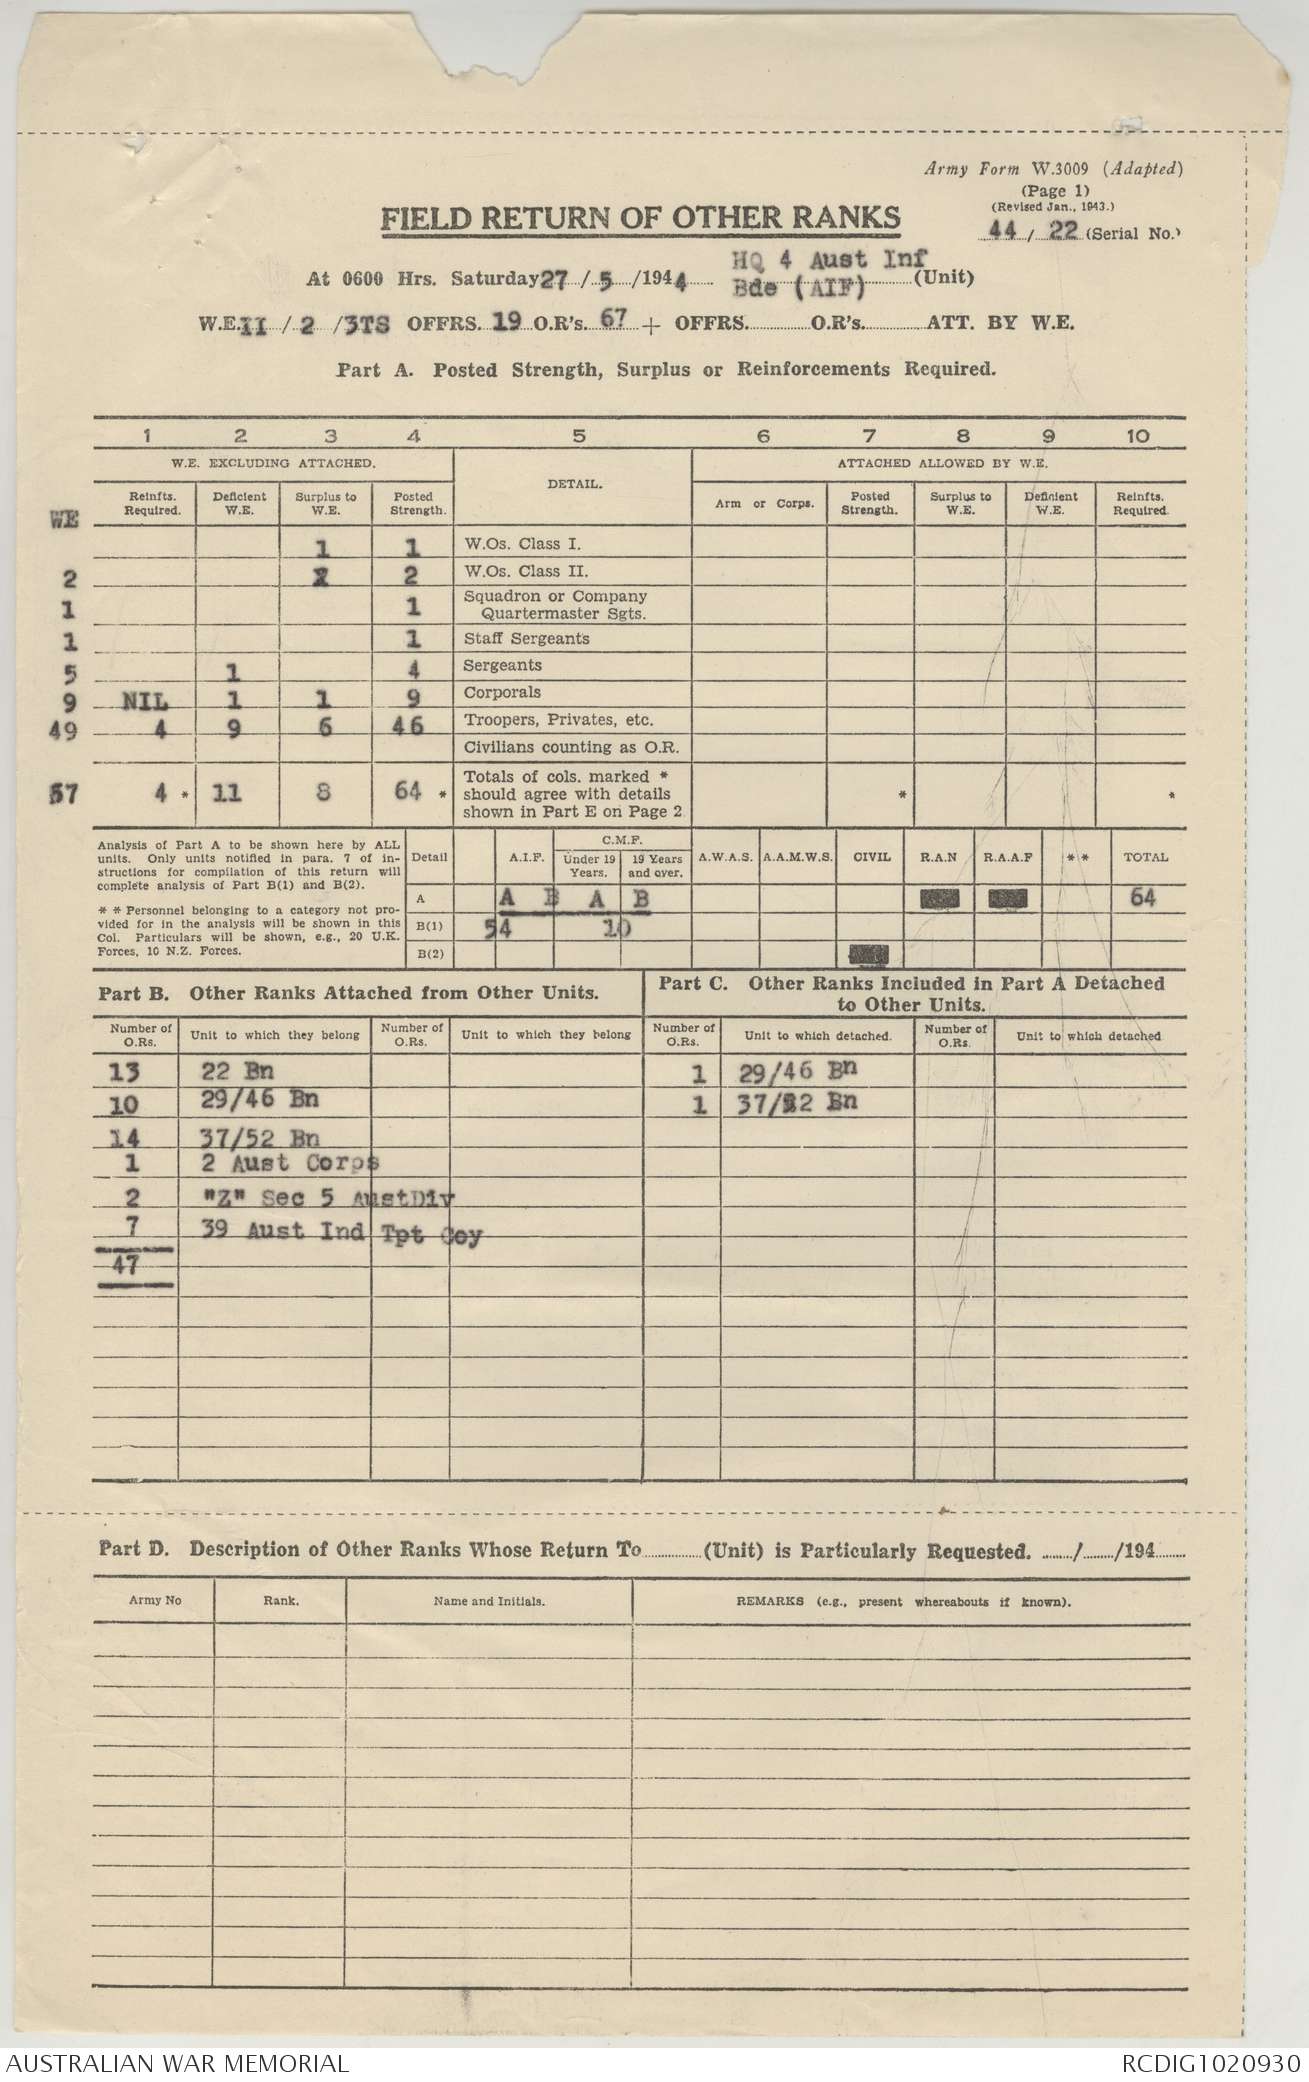 Army Form W.3009 (Adapted)
(Page 1)
(Revised Jan., 1943.)
FIELD RETURN OF OTHER RANKS
44 / 22 (Serial No.)
At 0600 Hrs. Saturday 27 / 5 /1944 HQ 4 Aust Inf Bde (AIF) (Unit)
W.E. II / 2 /3TS OFFRS. 19 O.R's. 67 + OFFRS. O.R's. ATT. BY W.E.
Part A. Posted Strength, Surplus or Reinforcements Required.
1 2 3 4 5 6 7 8 9 10
W.E. EXCLUDING ATTACHED. DETAIL. ATTACHED ALLOWED BY W.E.
WE Reinfts. Required. Deficient W.E. Surplus to W.E. Posted Strength. Arm or Corps. Posted Strength. Surplus to W.E. Deficient W.E. Reinfts. Required.
1 1 W.Os. Class I.
2 2 W.Os. Class II.
1 1 Squadron or Company Quartermaster Sgts.
1 1 Staff Sergeants
5 1 4 Sergeants
9 NIL 1 1 9 Corporals
49 4 9 6 46 Troopers, Privates, etc.
Civilians counting as O.R.
67 4 * 11 8 64 * Totals of cols. marked * should agree with details shown in Part E on Page 2 * *
Analysis of Part A to be shown here by ALL
units. Only units notified in para. 7 of in-
structions for compilation of this return will
complete analysis of Part B(1) and B(2).
* * Personnel belonging to a category not pro-
vided for in the analysis will be shown in this
Col. Particulars will be shown, e.g., 20 U.K.
Forces, 10 N.Z. Forces.
Detail A.I.F. C.M.F. Under 19 Years. 19 Years and over. A.W.A.S. A.A.M.W.S. CIVIL R.A.N R.A.A.F * * TOTAL
A A B A B 64
B(1) 54 10
B(2)
Part B. Other Ranks Attached from Other Units.
Part C. Other Ranks Included in Part A Detached
to Other Units.
Number of O.Rs. Unit to which they belong Number of O.Rs. Unit to which they belong Number of O.Rs. Unit to which detached. Number of O.Rs. Unit to which detached
13 22 Bn 1 29/46 Bn
10 29/46 Bn 1 37/52 Bn
14 37/52 Bn
1 2 Aust Corps
2 "Z" Sec 5 AustDiv
7 39 Aust Ind Tpt Coy
47
Part D. Description of Other Ranks Whose Return To (Unit) is Particularly Requested. / /194
Army No Rank. Name and Initials. REMARKS (e.g., present whereabouts if known).
AUSTRALIAN WAR MEMORIAL
RCDIG1020930